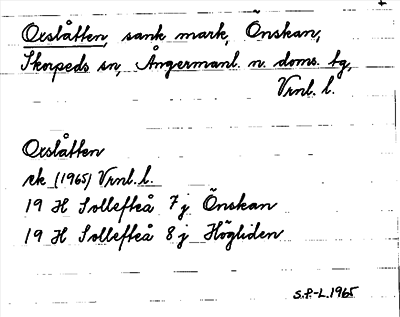 Orslåtten, sank mark, Önskan,
Skorpeds sn, Ångermanl. n. doms. tg,
Vrnl. l.
Orslåtten
ek (1965) Vrnl. l.
19 H Sollefteå 7 j Önskan
19 H Sollefteå 8 j Högliden
S.P-L. 1965